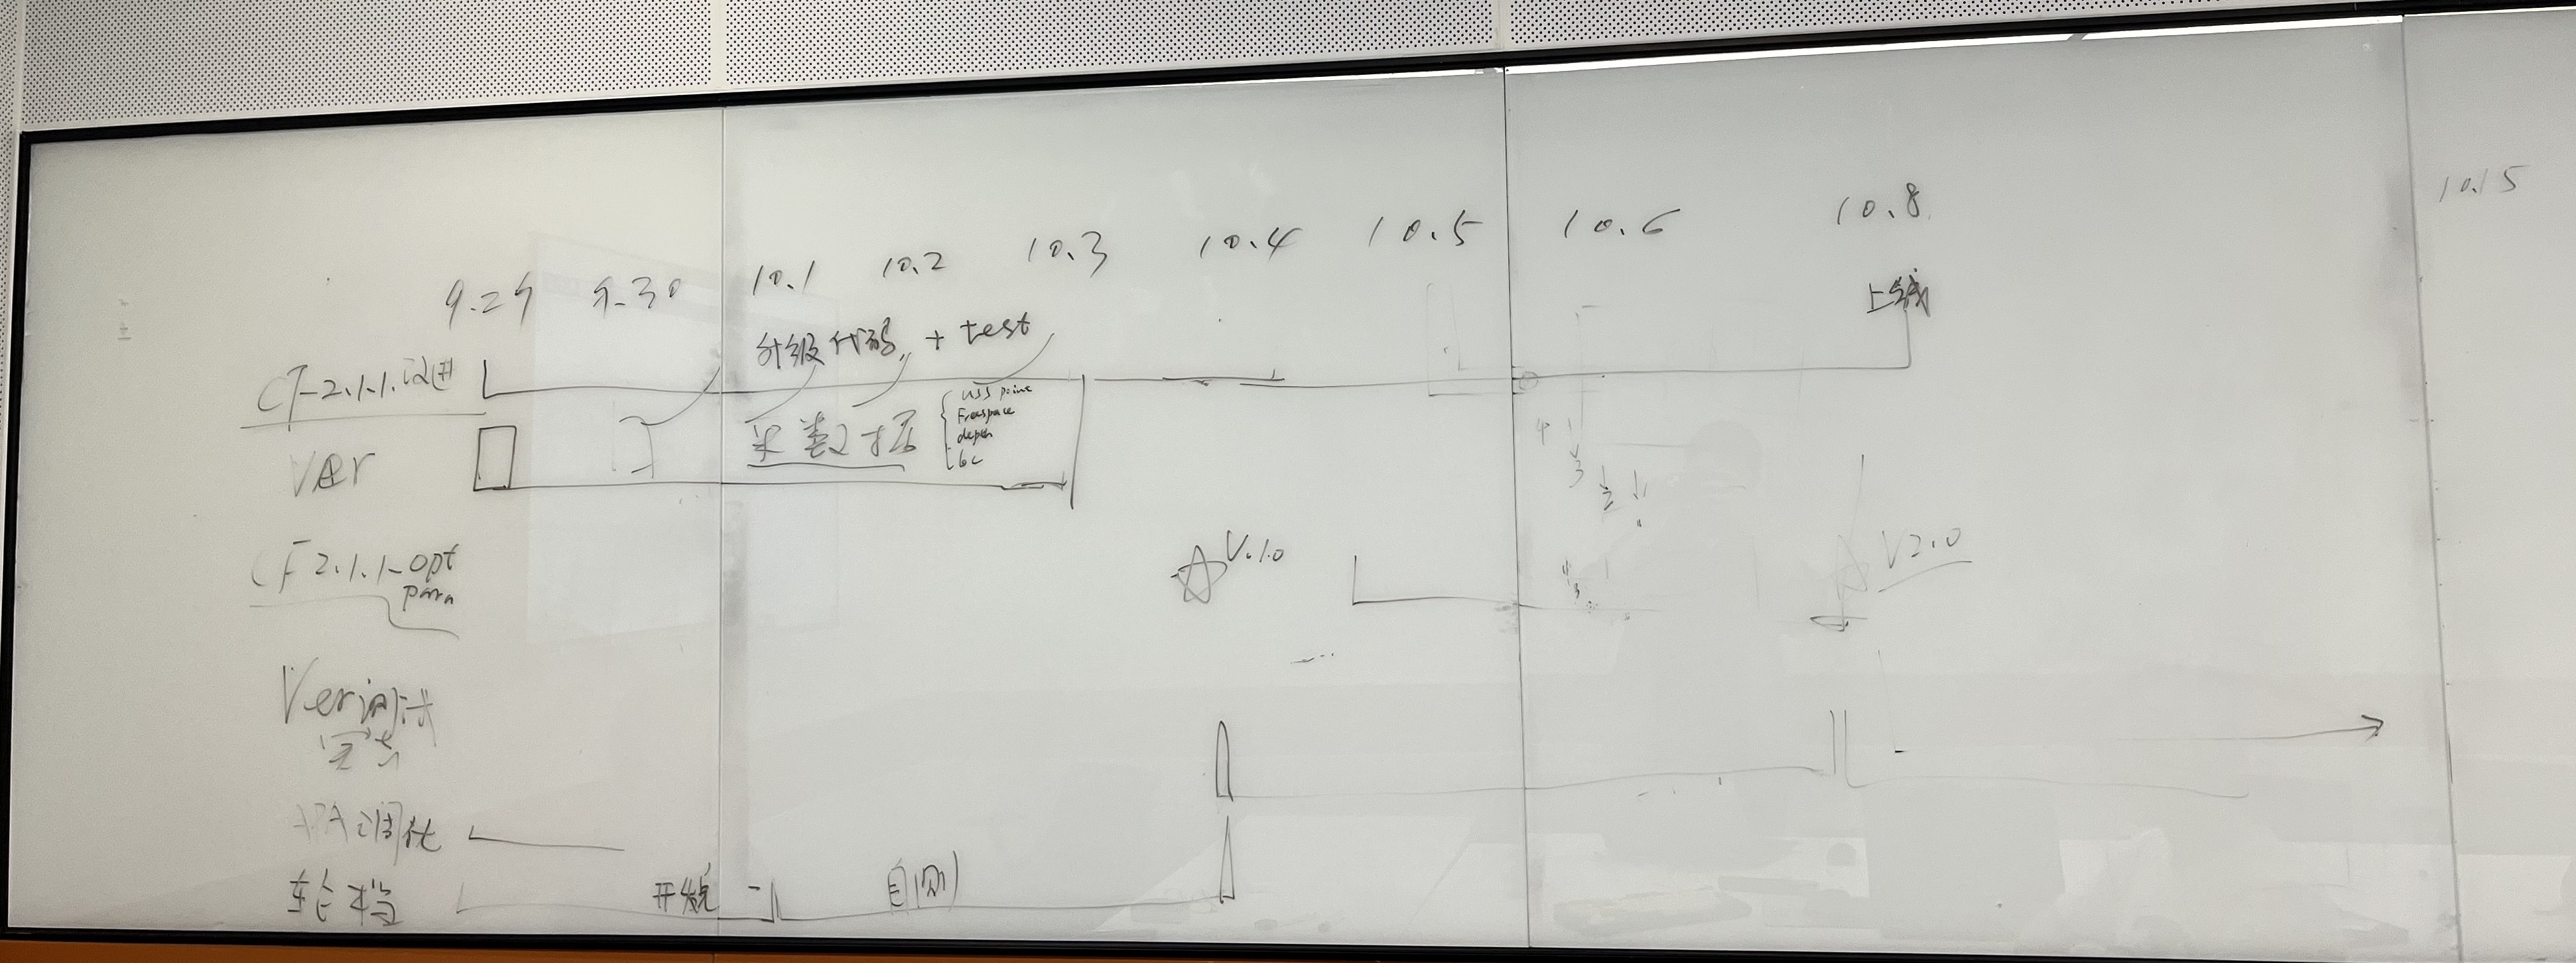 9.29 9.30 10.1 10.2 10.3 10.4 10.5 10.6 10.8 10.15
上线
升级代码 + test
CF-2.1.1.
采数据
uss point
Freespace
depth
CF 2.1.1-opt
para
V1.0
V2.0
APA 调优
轮档 开发 自测